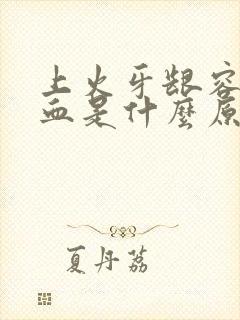 上火牙龈容
血是什麼原
夏丹荔